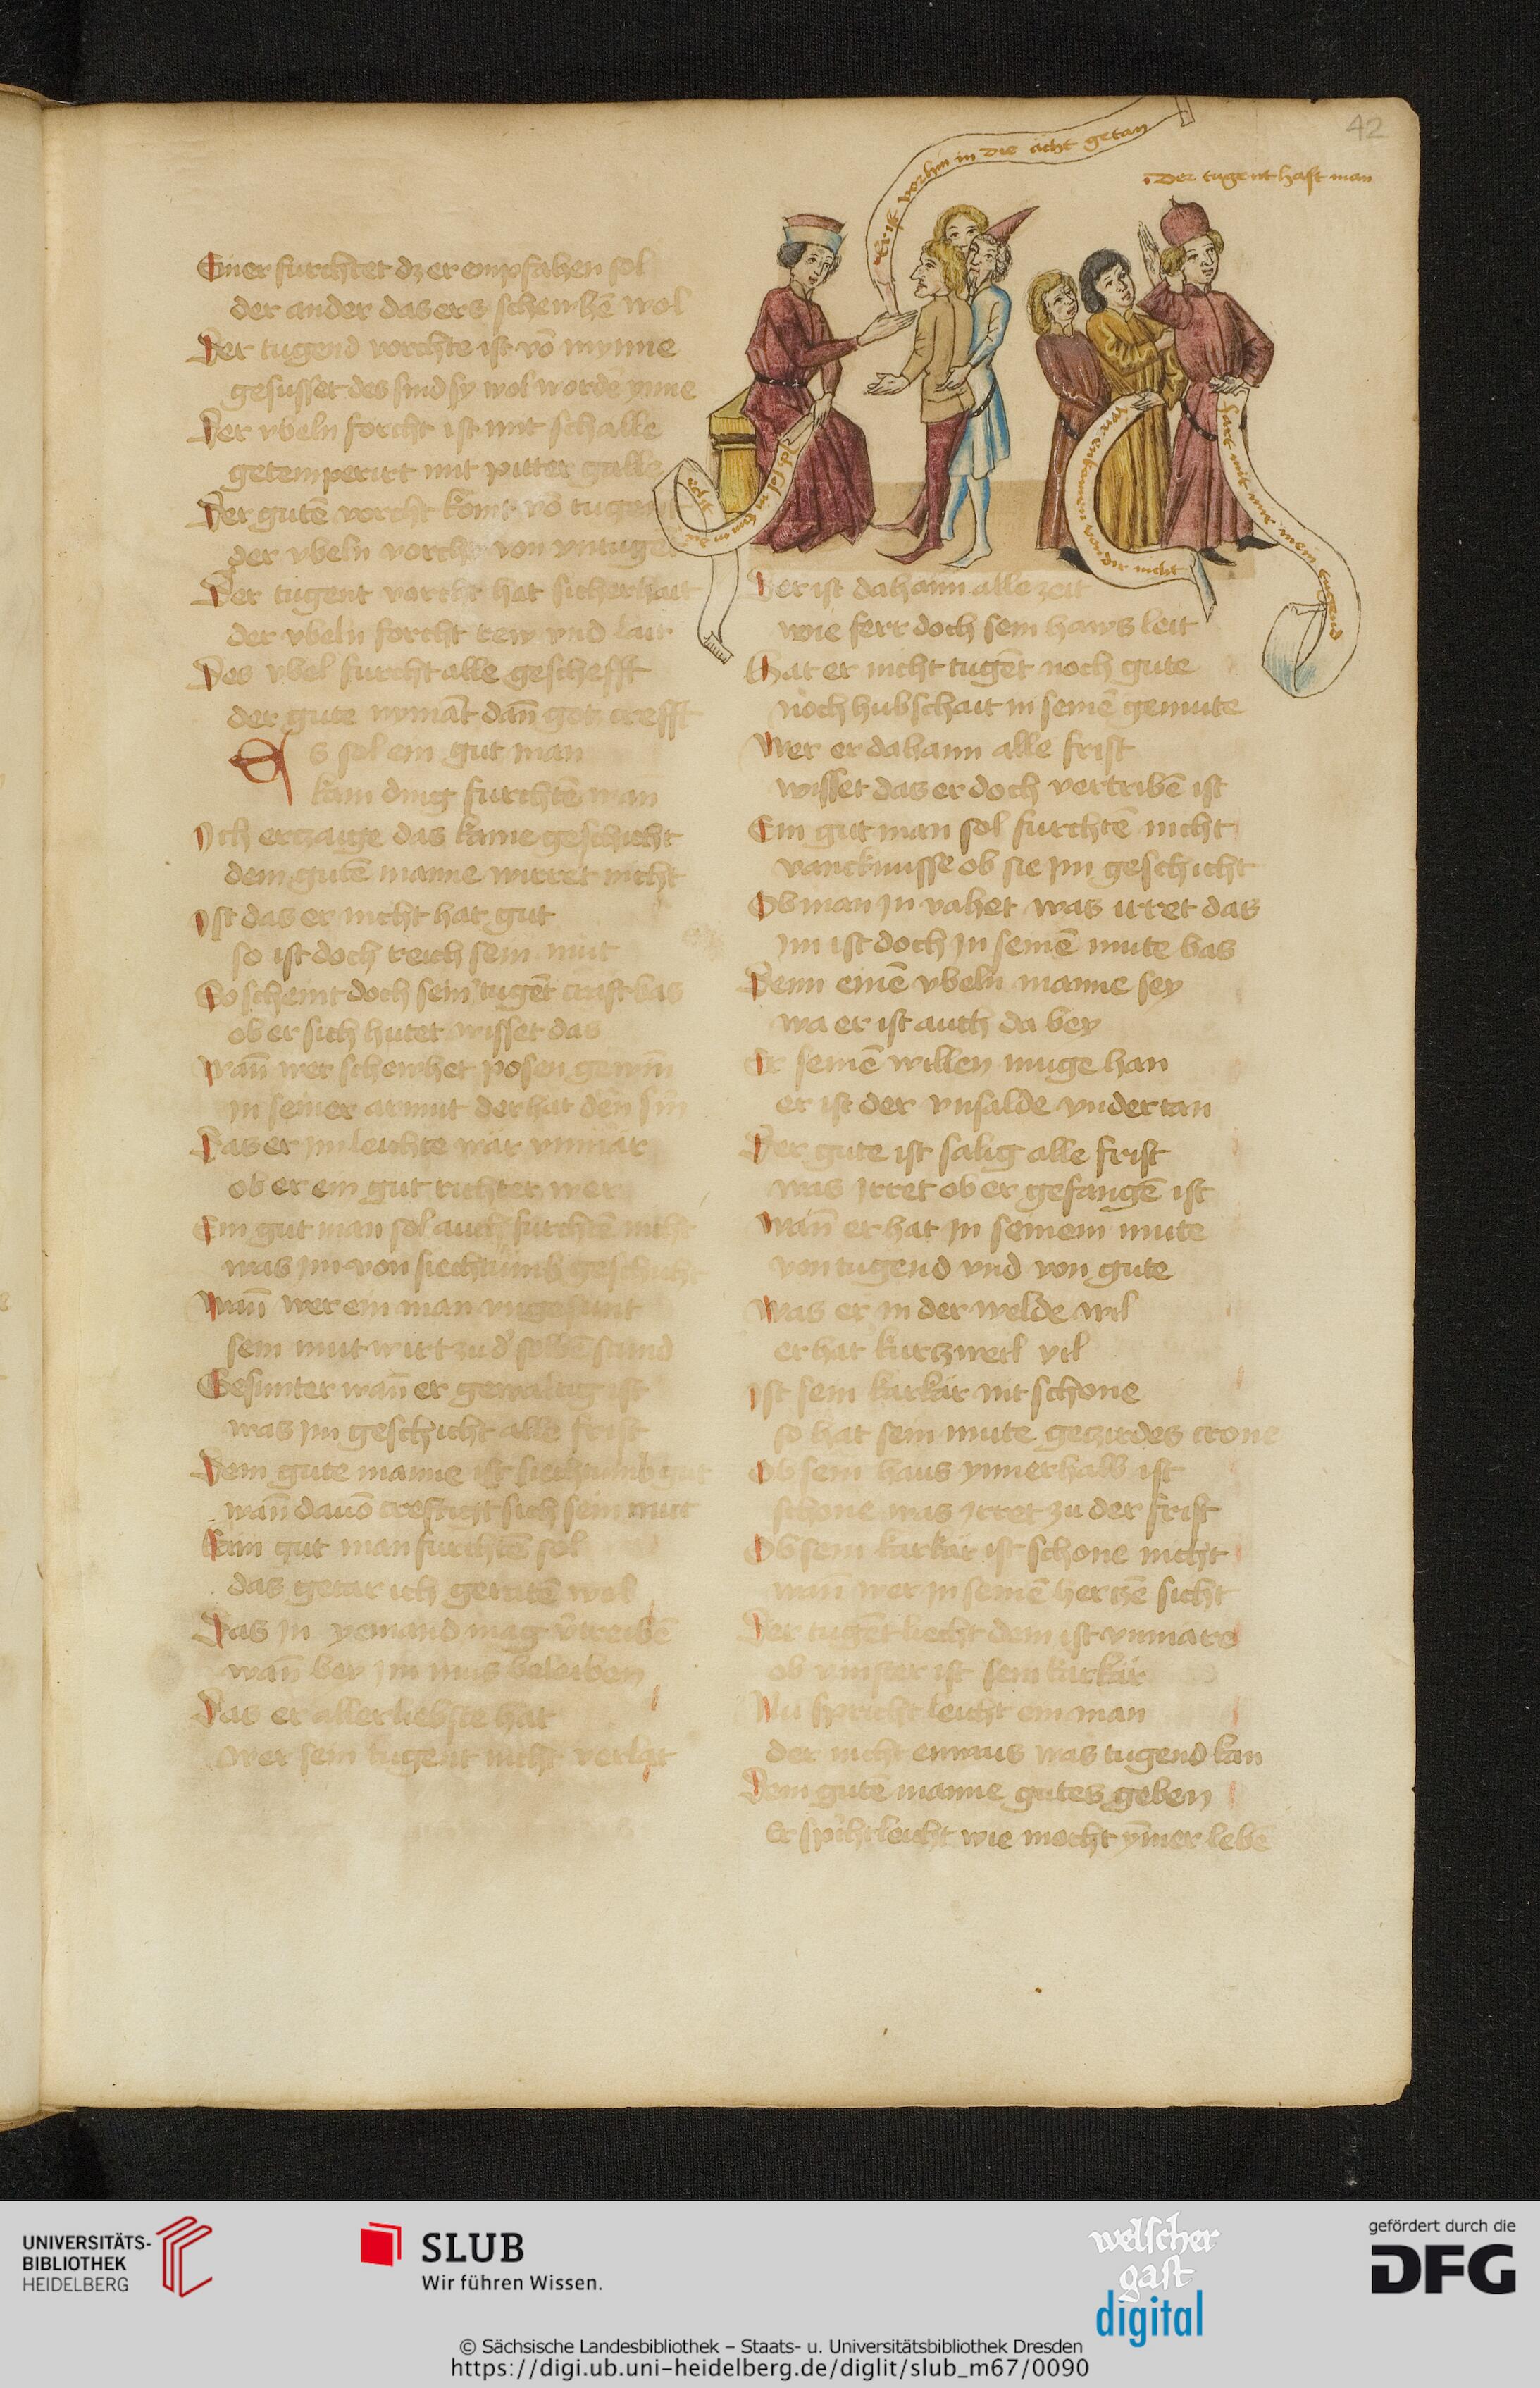 42
Erist vorhin in die acht getan
Der tugenthaft man
Einer furchtet dz er empfahen sol
der ander das ers schewhē wol
Der tugend vorchte ist vō mynne
gesusset des sind sy wol wordē ynne
Der vbeln forcht ist mit schalle
getemperirt mit pitter galle
Der gutē vorcht komt vō tugent
der vbeln vorcht von vntugēt
Der tugent vorcht hat sicherhait
der vbeln forcht rew vnd lait
Des vbel furcht alle geschefft
der gute nymāt dan̄ gotz crefft
Es sol ein gut man
kain ding furchtē wan
Ich erczaige das kaine geschicht
dem gutē manne wirret nicht
Ist das er nicht hat gut
so ist doch reich sein mut
So scheint doch sein tugēt craft bas
ob er sich hutet wisset das
Wan̄ wer schewhet posen gewin̄
in seiner armut der hat den sin̄
Das er im leuchte wār vnmār
ob er ein gut richter wer
Ein gut man sol auch furchtē nicht
was im von siechtumb geschicht
Wan̄ wer ein man vngesunt
sein mut wirt zu d' selbē stund
Gesunter wan̄ er gewaltig ist
was im geschicht alle frist
Dem gute manne ist siechtumb gut
wan̄ dauō creftigt sich sein mut
Kain gut man furchtē sol
das getar ich geratē wol
Das in yemand mag v'treibē
wan̄ bey im mus beleiben
Das er aller liebste hat
wer sein tugent nicht verlat
Ich sol in tun in die acht
wir enkumen von dir nicht
fart mit mir mein tugend
Der ist dahaim alle zeit
wie ferr doch sein haws leit
Hat er nicht tugēt noch gute
noch hubschait in seinē gemute
Wer er dahaim alle frist
wisset das er doch vertribē ist
Ein gut man sol furchtē nicht
vancknusse ob sie im geschicht
Ob man in vahet was irret das
im ist doch in seinē mute bas
Denn einē vbeln manne sey
wa er ist auch da bey
Er seinē willen muge han
er ist der vnsalde vndertan
Der gute ist salig alle frist
was irret ob er gefangē ist
Wan̄ er hat in seinem mute
von tugend vnd von gute
Was er in der welde wil
er hat kurczweil vil
Ist sein karkār nit schone
so hat sein mute gezirdes crone
Ob sein haus ynnerhalb ist
schone was irret zu der frist
Ob sein karkār ist schone nicht
wan̄ wer in seinē hertzē sicht
Der tugēt liecht dem ist vnmare
ob vinster ist sein karkār
Nu spricht leicht ein man
der nicht enwais was tugend kan
Dem gutē manne gutes geben
Er sp'icht leicht wie mocht ȳmer lebē
UNIVERSITÄTS-
BIBLIOTHEK
HEIDELBERG
SLUB
Wir führen Wissen.
welscher
gast
digital
gefördert durch die
DFG
© Sächsische Landesbibliothek – Staats- u. Universitätsbibliothek Dresden
https://digi.ub.uni-heidelberg.de/diglit/slub_m67/0090